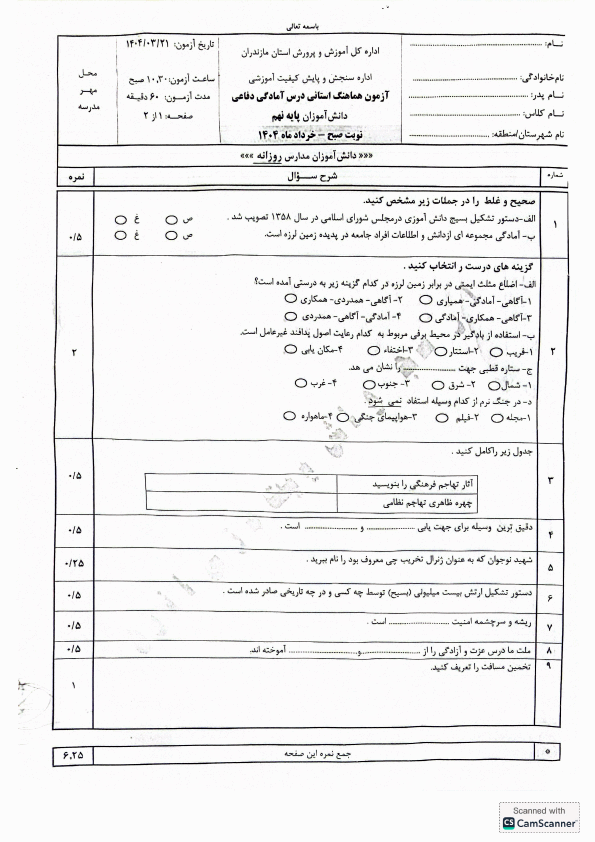 باسمه تعالی
نـام: ........................
نام‌خانوادگی: ........................
نـام پدر: ........................
نـام کلاس: ........................
نام شهرستان/منطقه: ........................
اداره کل آموزش و پرورش استان مازندران
اداره سنجش و پایش کیفیت آموزشی
آزمون هماهنگ استانی درس آمادگی دفاعی
دانش‌آموزان پایه نهم
نوبت صبح – خرداد ماه ۱۴۰۴
تاریخ آزمون: ۱۴۰۴/۰۳/۲۱
ساعت آزمون:۱۰,۳۰ صبح
مدت آزمـون: ۶۰ دقیقه
صفحـه: ۱ از ۲
محـل
مهـر
مدرسه
««« دانش‌آموزان مدارس روزانه »»»
شماره شرح ســؤال نمره
۱ صحیح و غلط را در جملات زیر مشخص کنید.
الف-دستور تشکیل بسیج دانش آموزی درمجلس شورای اسلامی در سال ۱۳۵۸ تصویب شد . ص غ
ب- آمادگی مجموعه ای ازدانش و اطلاعات افراد جامعه در پدیده زمین لرزه است. ص غ ۰/۵
۲ گزینه های درست را انتخاب کنید .
الف- اضلاع مثلث ایمنی در برابر زمین لرزه در کدام گزینه زیر به درستی آمده است؟
۱-آگاهی- آمادگی- همیاری ۲- آگاهی- همدردی- همکاری
۳-آگاهی- همکاری- آمادگی ۴- آمادگی- آگاهی- همدردی
ب- استفاده از بادگیر در محیط برفی مربوط به کدام رعایت اصول پدافند غیرعامل است. ۲
۱-فریب ۲-استتار ۳-اختفاء ۴-مکان یابی
ج- ستاره قطبی جهت ........................ را نشان می هد.
۱- شمال ۲- شرق ۳- جنوب ۴- غرب
د- در جنگ نرم از کدام وسیله استفاد نمی شود .
۱-مجله ۲-فیلم ۳-هواپیمای جنگی ۴-ماهواره
۳ جدول زیر راکامل کنید . ۰/۵
آثار تهاجم فرهنگی را بنویسید
چهره ظاهری تهاجم نظامی
۴ دقیق ترین وسیله برای جهت یابی .................. و .................. است . ۰/۵
۵ شهید نوجوان که به عنوان ژنرال تخریب چی معروف بود را نام ببرید . ۰/۲۵
۶ دستور تشکیل ارتش بیست میلیونی (بسیج) توسط چه کسی و در چه تاریخی صادر شده است . ۰/۵
۷ ریشه و سرچشمه امنیت ........................ است . ۰/۵
۸ ملت ما درس عزت و آزادگی را از ........................و........................ آموخته اند. ۰/۵
۹ تخمین مسافت را تعریف کنید. ۱
* جمع نمره این صفحه ۶,۲۵
Scanned with
CS CamScanner